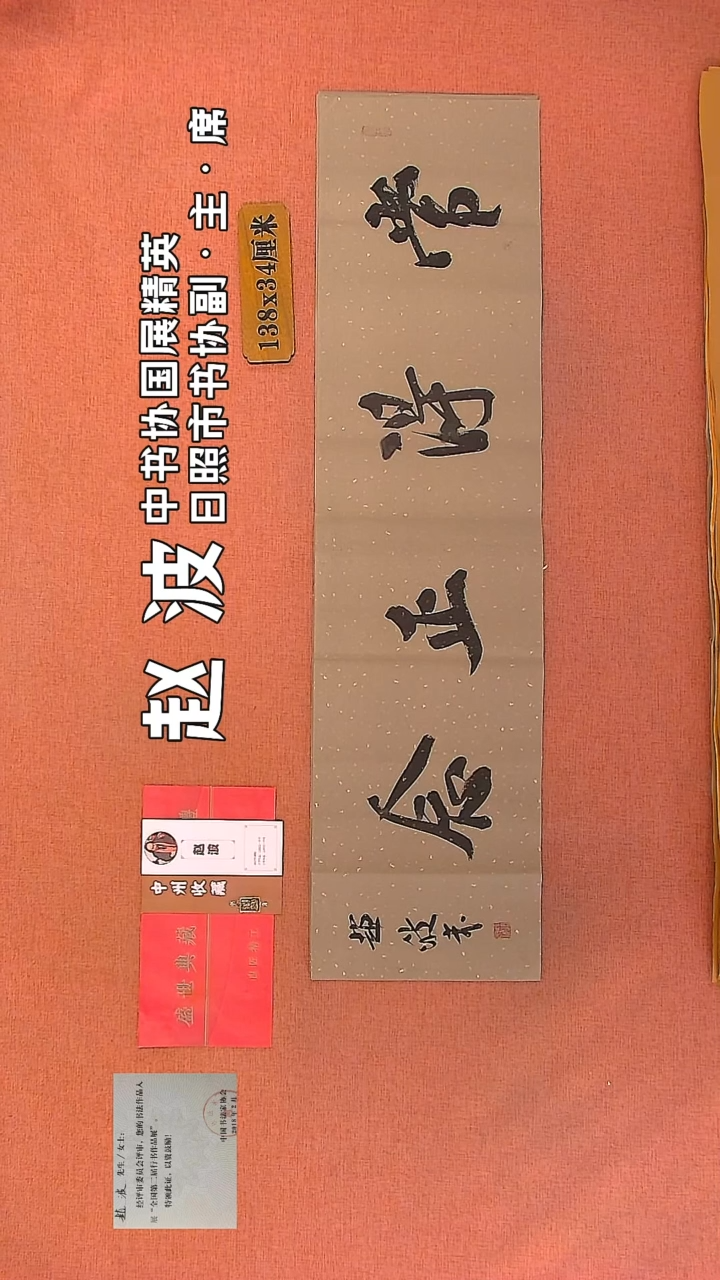 赵波
中书协国展精英
日照市书协副·主·席
138x34厘米
常得正念
赵波书
赵波
中州收藏
盛世典藏
赵波 先生/女士:
经评审委员会评审,您的书法作品入
展“全国第二届行书作品展”。
特颁此证,以资鼓励!
中国书法家协会
2018年2月